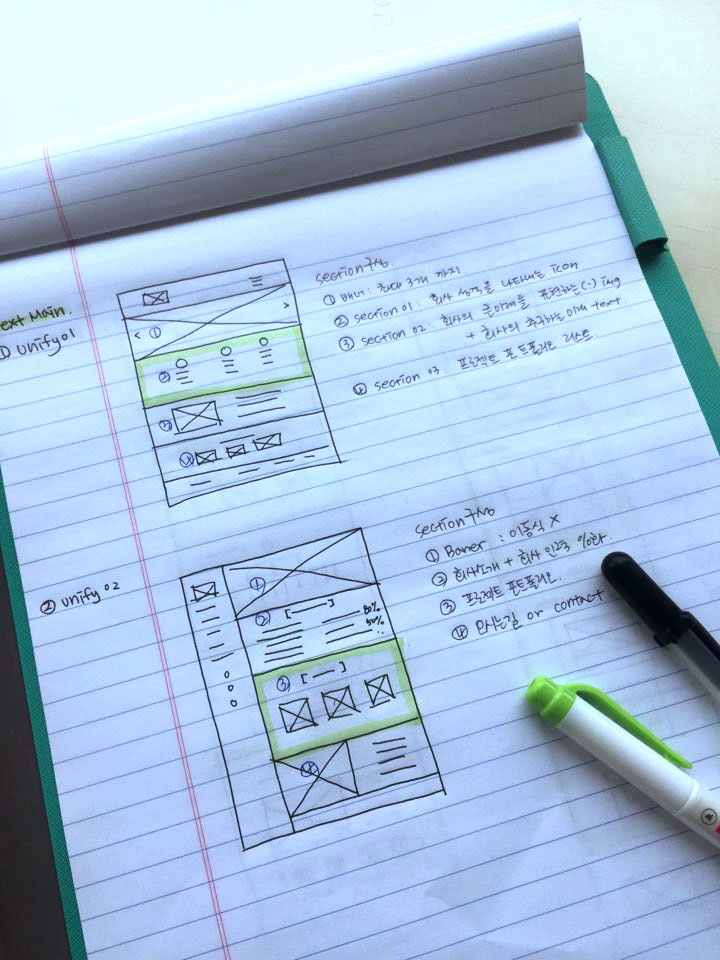 ext Main.
① unify 01
section 구성
① 배너 : 최대 3개 까지.
② section 01 : 회사 성격을 나타내는 icon
③ section 02 : 회사의 큰 이미지를 표현하는 (-) img
+ 회사의 추구하는 이미지 text.
④ section 03 : 프로젝트 폰트폴리오 리스트
< ① >
②
③
④
② unify 02
section 구성
① Baner : 이동식 X
② 회사소개 + 회사 인력 %화.
③ 프로젝트 폰트폴리오.
④ 오시는길 or contact.
①
②
80%
50%
③
④